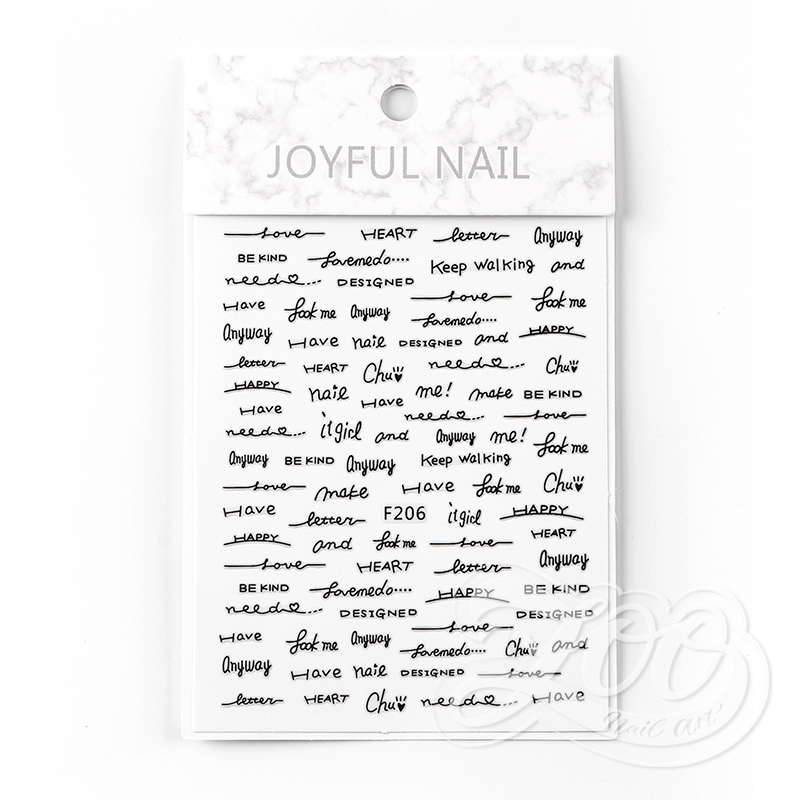 JOYFUL NAIL
Love HEART letter Anyway
BE KIND Lovemedo.... Keep walking and
need... DESIGNED
Have Look me Anyway Love Look me
Lovemedo....
Anyway Have nail DESIGNED and HAPPY
letter HEART Chu need... Chu
HAPPY nail Have me! make BE KIND
Have need... Love
need... itgirl and Anyway me! Look me
Anyway BE KIND Anyway Keep walking
Love make Have Look me Chu
Have letter F206 itgirl HAPPY
HAPPY and Look me Love HEART
Love HEART letter Anyway
BE KIND Lovemedo.... HAPPY BE KIND
need... DESIGNED DESIGNED
Have Look me Anyway Love
Lovemedo.... Chu and
Anyway Have nail DESIGNED Love
letter HEART Chu need... Have
ZOO
Nail Art